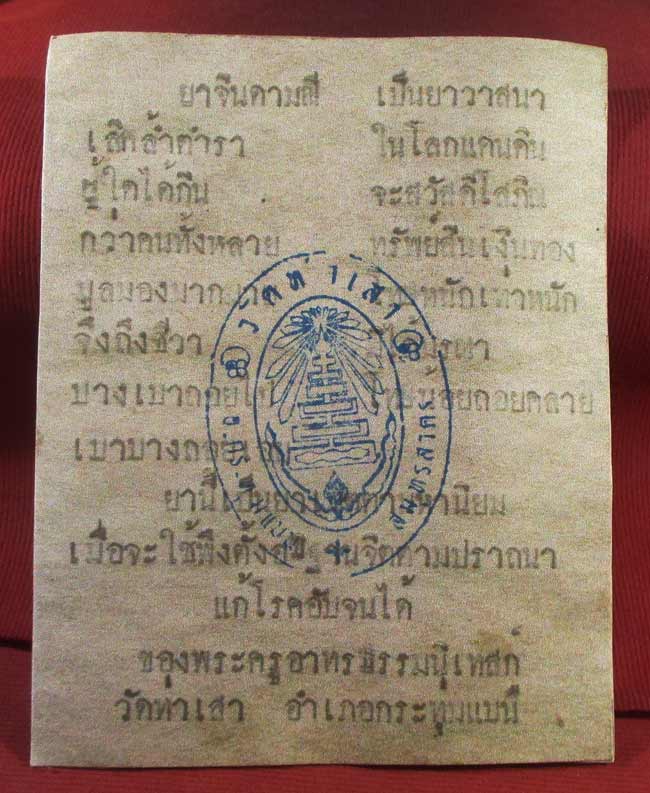 ยาจินดามณี เป็นยาวาสนา
เลิศล้ำตำรา ในโลกแดนดิน
ผู้ใดได้กิน จะสวัสดีโสภิณ
กว่าคนทั้งหลาย ทรัพย์สินเงินทอง
พูลมอง หนักเท่าหนัก
จึงถึงชีวา
บางเบาถอยไป น้อยถอยคลาย
เบาบาง
ยานี้เป็นยา านิยม
เมื่อจะใช้พึงตั้ง จิตตามปราถนา
แก้โรคอับจนได้
ของพระครูอาทรธรรมนิเทสก์
วัดท่าเสา อำเภอกระทุ่มแบน
วัดท่าเสา
สมุทรสาคร